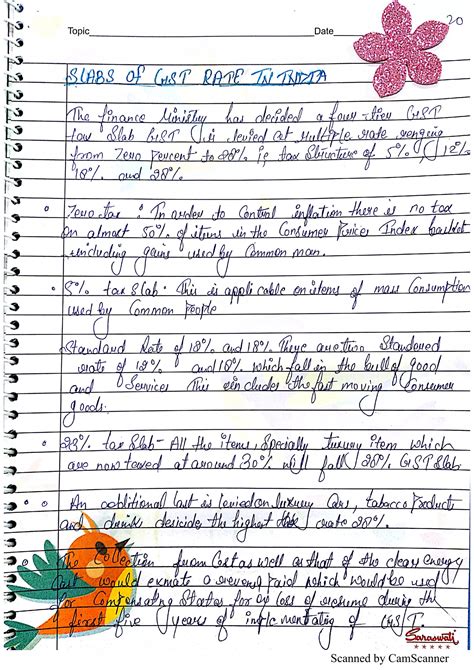 Topic Date
20
SLABS OF GST RATE IN INDIA
The finance Ministry has decided a four-tier GST
tax Slab GST is levied at multiple rate renging
from Zero percent to 28% ie tax Structure of 5% 12%
18% and 28%.
Zero tax : In order to Control inflation there is no tax
on almost 50% of items in the Consumer Prices Index basket
including gains used by Common man.
5% tax Slab - This is applicable on items of mass Consumption
used by Common people
Standard Rate of 12% and 18% There are two Standered
rate of 12% and 18% which fall in the bull of good
and Services This includes the fast moving Consumer
goods.
28% tax Slab - All the items, Specially luxury item which
are now taxed at around 30% will fall 28% GST Slab
An additional cast is levied on luxury Cars, tobacco Products
and drinks the highest rate 28%.
The Collection from Cast as well as that of the clean energy
Cast would which would be used
for Compensating States for any loss of during the
first five years of of GST.
Saraswati
Scanned by CamScanner